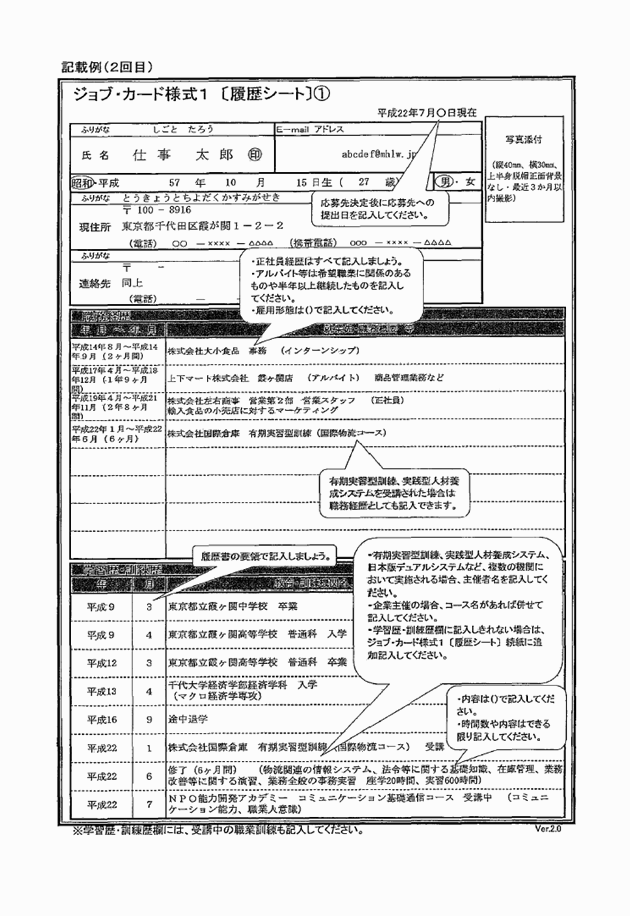 記載例(2回目)
ジョブ・カード様式1 〔履歴シート〕①
平成22年7月〇日現在
ふりがな しごと たろう
E-mail アドレス
氏名 仕事 太郎 ㊞
abcdef@mhlw.jp
写真添付
(縦40mm、横30mm、
上半身脱帽正面背景
なし・最近3か月以
内撮影)
昭和・平成 57 年 10 月 15日生( 27 歳) 男・女
ふりがな とうきょうとちよだくかすみがせき
〒 100 - 8916
現住所 東京都千代田区霞が関1-2-2
(電話) ○○ -××××-△△△△ (携帯電話) ○○○-××××-△△△△
応募先決定後に応募先への
提出日を記入してください。
ふりがな
〒 -
連絡先 同上
(電話) -
・正社員経歴はすべて記入しましょう。
・アルバイト等は希望職業に関係のある
ものや半年以上継続したものを記入し
てください。
・雇用形態は()で記入してください。
年 月 ～ 年 月
平成14年8月～平成14
年9月(2ヶ月間)
株式会社大小食品 事務 (インターンシップ)
平成17年4月～平成18
年12月(1年9ヶ月
間)
上下マート株式会社 霞ヶ関店 (アルバイト) 商品管理業務など
平成19年4月～平成21
年11月(2年8ヶ月
間)
株式会社左右商事 営業第2部 営業スタッフ (正社員)
輸入食品の小売店に対するマーケティング
平成22年1月～平成22
年6月(6ヶ月)
株式会社国際倉庫 有期実習型訓練(国際物流コース)
有期実習型訓練、実践型人材養
成システムを受講された場合は
職務経歴としても記入できます。
学習歴・訓練歴
履歴書の要領で記入しましょう。
・有期実習型訓練、実践型人材養成システム、
日本版デュアルシステムなど、複数の機関に
おいて実施される場合、主催者名を記入してく
ださい。
・企業主催の場合、コース名があれば併せて
記入してください。
・学習歴・訓練歴欄に記入しきれない場合は、
ジョブ・カード様式1〔履歴シート〕続紙に追
加記入してください。
年 月
平成9 3 東京都立霞ヶ関中学校 卒業
平成9 4 東京都立霞ヶ関高等学校 普通科 入学
平成12 3 東京都立霞ヶ関高等学校 普通科 卒業
平成13 4 千代大学経済学部経済学科 入学
(マクロ経済学専攻)
平成16 9 途中退学
・内容は()で記入してくだ
さい。
・時間数や内容はできる
限り記入してください。
平成22 1 株式会社国際倉庫 有期実習型訓練(国際物流コース) 受講
平成22 6 修了(6ヶ月間) (物流関連の情報システム、法令等に関する基礎知識、在庫管理、業務
改善等に関する演習、業務全般の事務実習 座学20時間、実習600時間)
平成22 7 NPO能力開発アカデミー コミュニケーション基礎通信コース 受講中 (コミュニ
ケーション能力、職業人意識)
※学習歴・訓練歴欄には、受講中の職業訓練も記入してください。
Ver.2.0